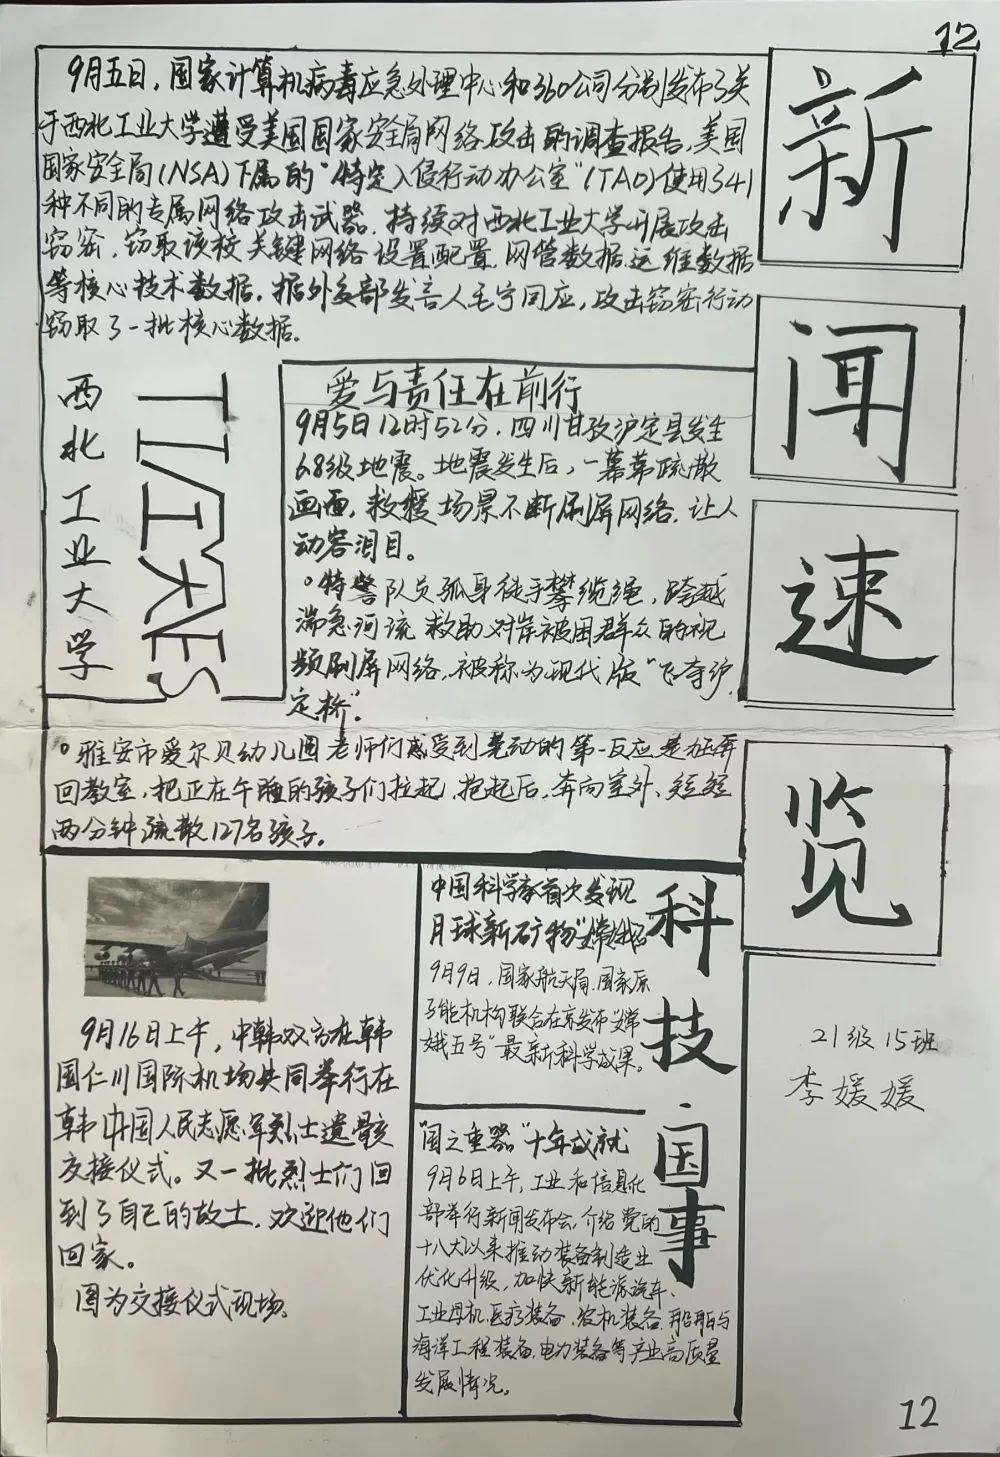 12
新
闻
速
览
9月五日，国家计算机病毒应急处理中心和360公司分别发布了关
于西北工业大学遭受美国国家安全局网络攻击的调查报告，美国
国家安全局(NSA)下属的"特定入侵行动办公室"(TAO)使用了41
种不同的专属网络攻击武器，持续对西北工业大学开展攻击
窃密，窃取该校关键网络设置配置、网管数据、运维数据
等核心技术数据。据外交部发言人毛宁回应，攻击窃密行动
窃取了一批核心数据。
西北工业大学
爱与责任在前行
9月5日12时52分，四川甘孜泸定县发生
6.8级地震。地震发生后，一幕幕疏散
画面，救援场景不断刷屏网络，让人
动容泪目。
。特警队员孤身徒手攀缆绳，跨越
湍急河流救助对岸被困群众的视
频刷屏网络，被称为现代版"飞夺泸
定桥"。
。雅安市爱尔贝幼儿园老师们感受到晃动的第一反应是狂奔
回教室，把正在午睡的孩子们拉起、抱起后，奔向室外、短短
两分钟疏散127名孩子。
9月16日上午，中韩双方在韩
国仁川国际机场共同举行在
韩中国人民志愿军烈士遗骸
交接仪式。又一批烈士们回
到了自己的故土，欢迎他们
回家。
图为交接仪式现场。
科技
中国科学家首次发现
月球新矿物"嫦娥石"
9月9日，国家航天局、国家原
子能机构联合在京发布"嫦
娥五号"最新科学成果。
国事
"国之重器"十年成就
9月6日上午，工业和信息化
部举行新闻发布会，介绍党的
十八大以来推动装备制造业
优化升级，加快新能源汽车、
工业母机、医疗装备、农机装备、船舶与
海洋工程装备、电力装备等产业高质量
发展情况。
21级15班
李媛媛
12